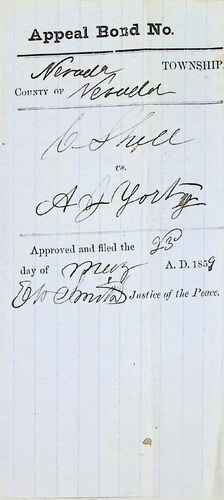 Appeal Bond No.
Nevada TOWNSHIP
COUNTY OF Nevada
C Shell
vs.
A J Yorty
Approved and filed the 23
day of May A. D. 1859
E W Smith Justice of the Peace.